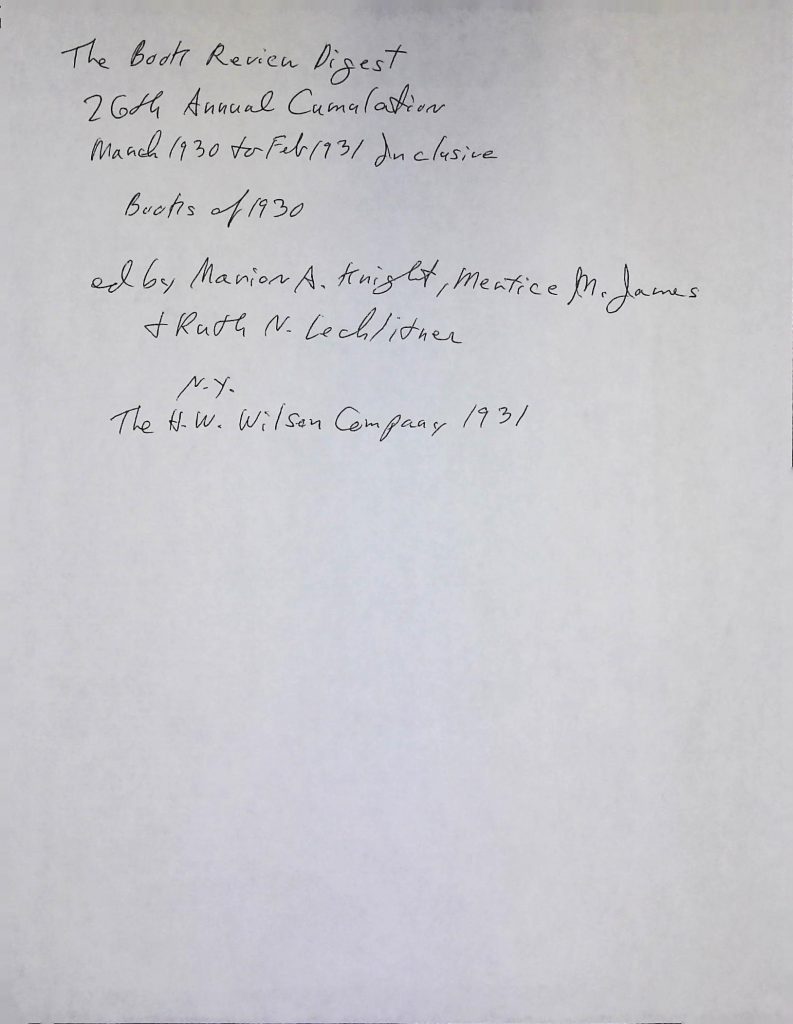 The Book Review Digest
26th Annual Cumulation
March 1930 to Feb 1931 Inclusive
Books of 1930
ed by Marion A. Knight, Mertice M. James
+ Ruth N. Lechlitner
N.Y.
The H.W. Wilson Company 1931